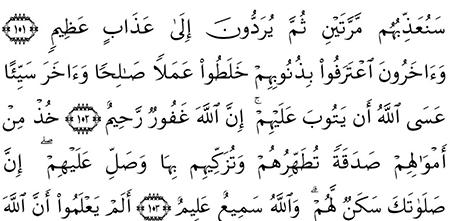 سَنُعَذِّبُهُم مَّرَّتَيْنِ ثُمَّ يُرَدُّونَ إِلَىٰ عَذَابٍ عَظِيمٍ ﴿١٠١﴾
وَءَاخَرُونَ ٱعْتَرَفُوا۟ بِذُنُوبِهِمْ خَلَطُوا۟ عَمَلًا صَـٰلِحًا وَءَاخَرَ سَيِّئًا
عَسَى ٱللَّهُ أَن يَتُوبَ عَلَيْهِمْ ۚ إِنَّ ٱللَّهَ غَفُورٌ رَّحِيمٌ ﴿١٠٢﴾ خُذْ مِنْ
أَمْوَٰلِهِمْ صَدَقَةً تُطَهِّرُهُمْ وَتُزَكِّيهِم بِهَا وَصَلِّ عَلَيْهِمْ ۖ إِنَّ
صَلَوٰتَكَ سَكَنٌ لَّهُمْ ۗ وَٱللَّهُ سَمِيعٌ عَلِيمٌ ﴿١٠٣﴾ أَلَمْ يَعْلَمُوٓا۟ أَنَّ ٱللَّهَ